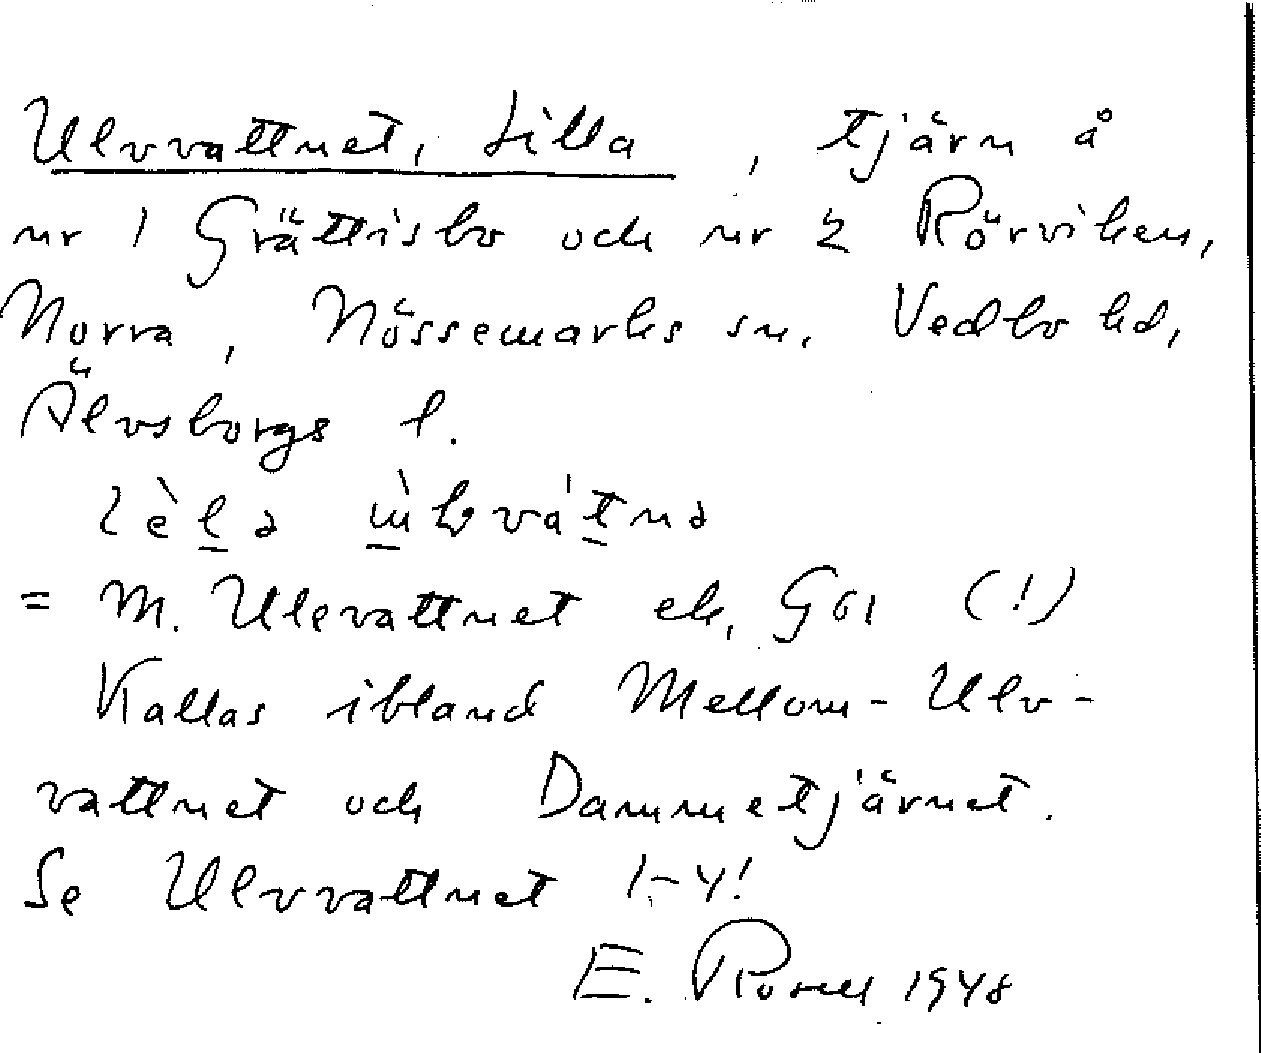 Ulvvattnet, Lilla, tjärn å
nr 1 Grättisbo och nr 2 Rörviken,
Norra, Nössemarks sn. Vedbo hd,
Älvsborgs l.
= M. Ulevattnet ek, G61 (!)
Kallas ibland Mellom-Ulv-
vattnet och Dammetjärnet.
Se Ulvvattnet 1-4!
E. Rosell 1948